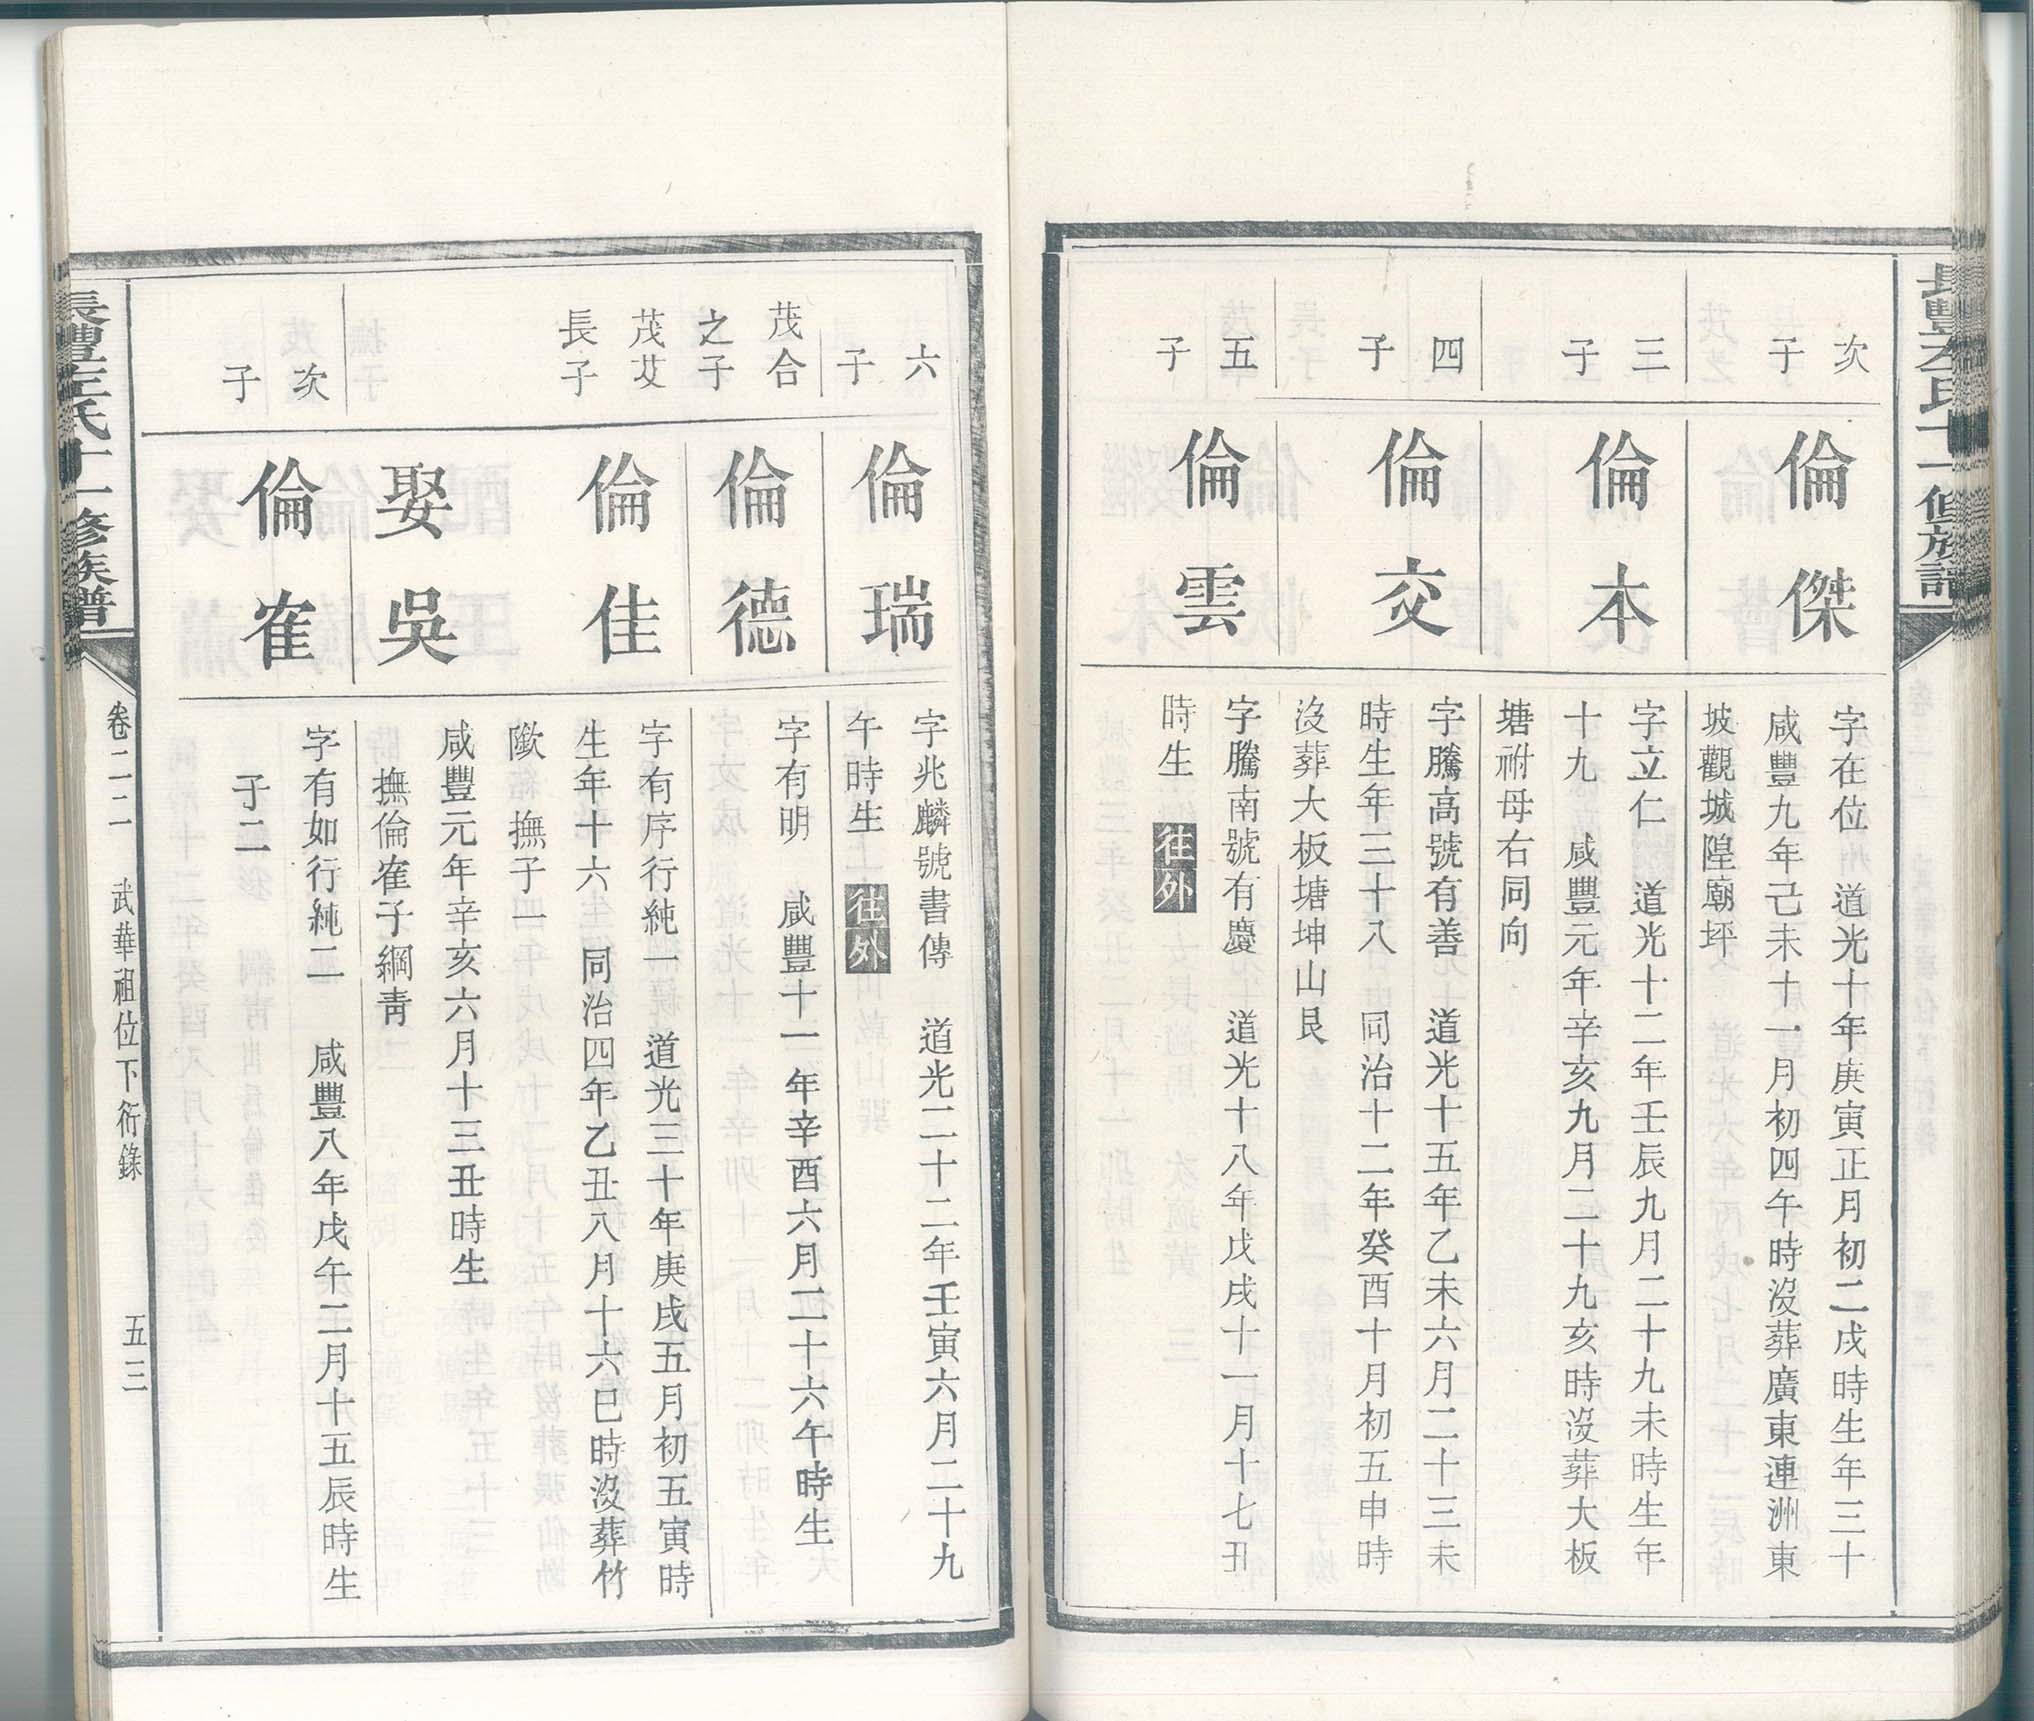 長豐左氏十一修族譜
次子
倫傑
字在位 道光十年庚寅正月初二戌時生年三十
咸豐九年己未十一月初四午時沒葬廣東連洲東
坡觀城隍廟坪
三子
倫本
字立仁 道光十二年壬辰九月二十九未時生年
十九 咸豐元年辛亥九月二十九亥時沒葬大板
塘祔母右同向
四子
倫交
字騰高號有善 道光十五年乙未六月二十三未
時生年三十八 同治十二年癸酉十月初五申時
沒葬大板塘坤山艮
五子
倫雲
字騰南號有慶 道光十八年戊戌十一月十七丑
時生 往外
六子
倫瑞
字兆麟號書傳 道光二十二年壬寅六月二十九
午時生 往外
茂合之子
倫德
字有明 咸豐十一年辛酉六月二十六午時生
茂艾長子
倫佳
字有序行純一 道光三十年庚戌五月初五寅時
生年十六 同治四年乙丑八月十六巳時沒葬竹
歟 撫子一
娶吳
咸豐元年辛亥六月十三丑時生
撫倫隺子綱青
次子
倫隺
字有如行純二 咸豐八年戊午二月十五辰時生
子二
長豐左氏十一修族譜
卷二二 武華祖位下衍錄 五三